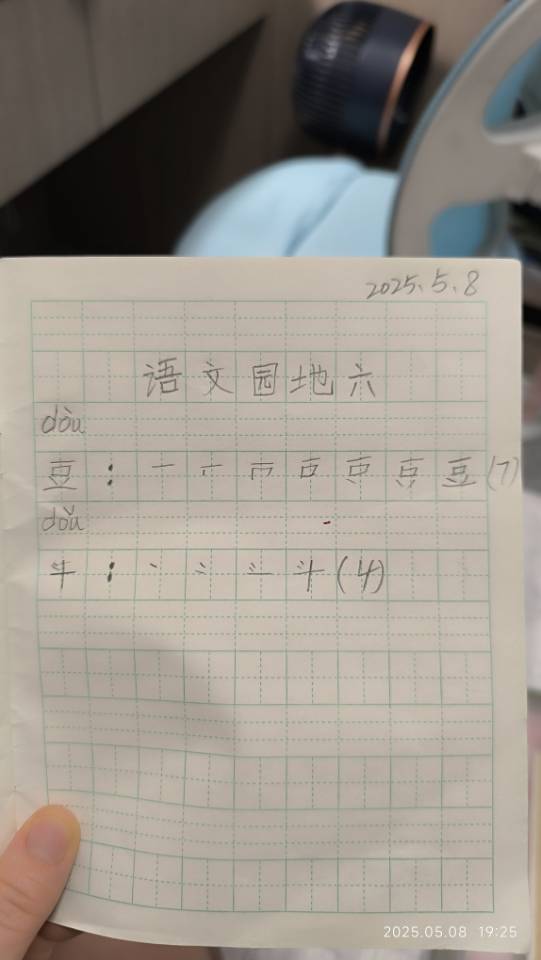 2025.5.8
语文园地六
dòu
豆：一 丆 豆(7)
dǒu
斗：丶 斗(4)
2025.05.08 19:25